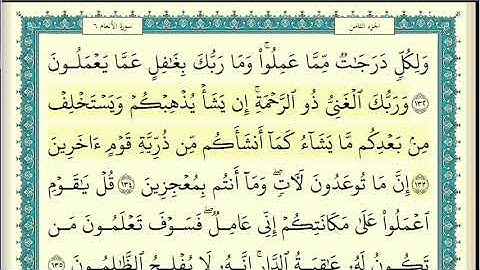 الجزء الثامن
سورة الأنعام ٦
وَلِكُلٍّ دَرَجَٰتٌ مِّمَّا عَمِلُوا۟ ۚ وَمَا رَبُّكَ بِغَٰفِلٍ عَمَّا يَعْمَلُونَ
١٣٢ وَرَبُّكَ ٱلْغَنِىُّ ذُو ٱلرَّحْمَةِ ۚ إِن يَشَأْ يُذْهِبْكُمْ وَيَسْتَخْلِفْ
مِنۢ بَعْدِكُم مَّا يَشَآءُ كَمَآ أَنشَأَكُم مِّن ذُرِّيَّةِ قَوْمٍ ءَاخَرِينَ
١٣٣ إِنَّ مَا تُوعَدُونَ لَءَاتٍ ۖ وَمَآ أَنتُم بِمُعْجِزِينَ ١٣٤ قُلْ يَٰقَوْمِ
ٱعْمَلُوا۟ عَلَىٰ مَكَانَتِكُمْ إِنِّى عَامِلٌ ۖ فَسَوْفَ تَعْلَمُونَ مَن
تَكُونُ لَهُۥ عَٰقِبَةُ ٱلدَّارِ ۗ إِنَّهُۥ لَا يُفْلِحُ ٱلظَّٰلِمُونَ ١٣٥